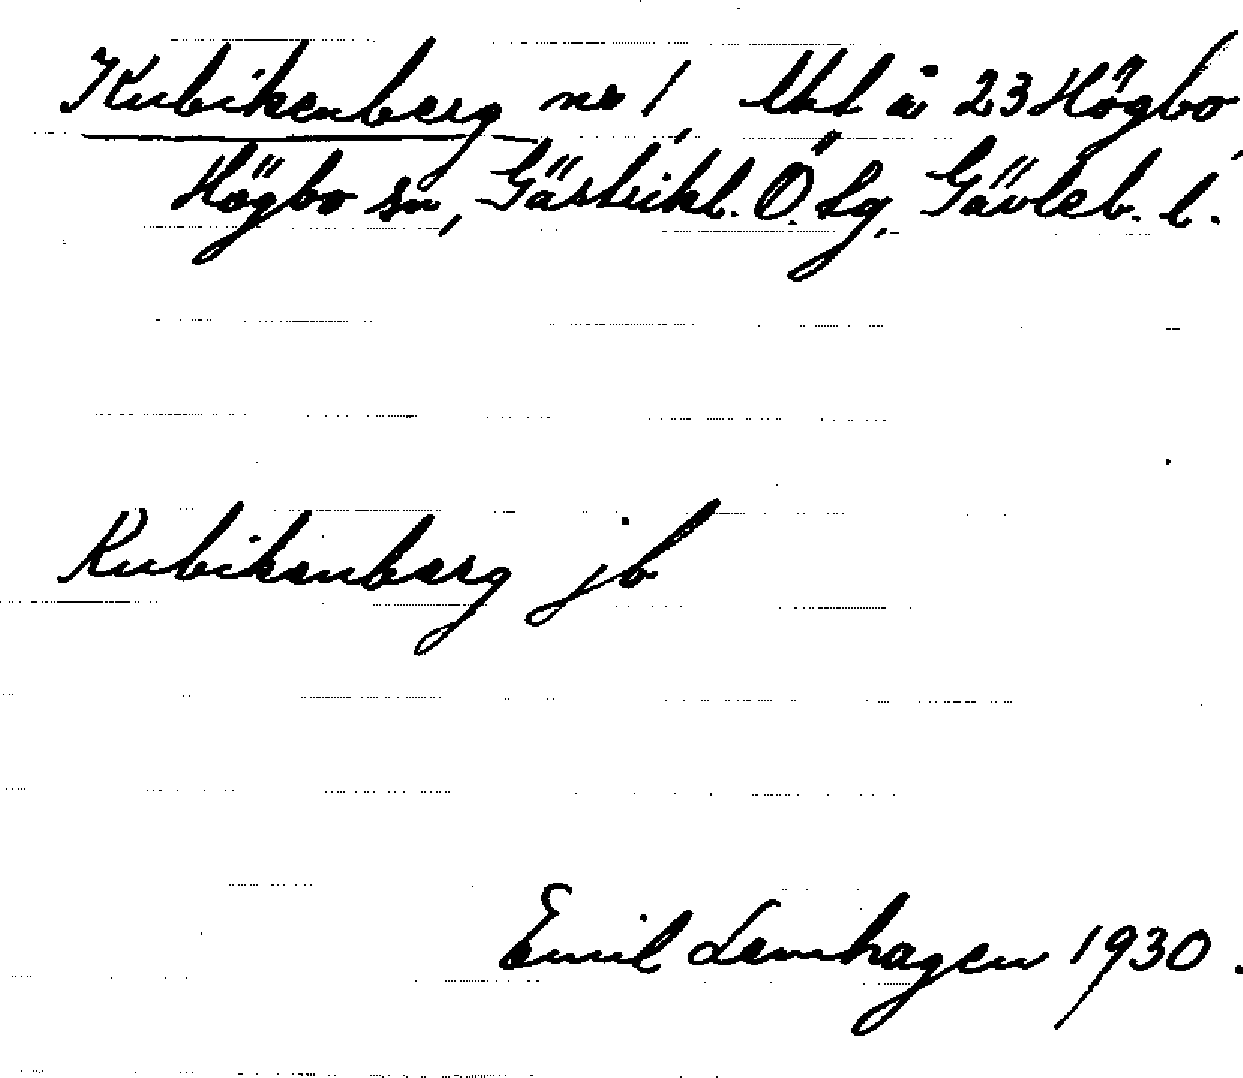 Kubikenberg no 1, Utl å 23 Högbo,
Högbo sn, Gästrikl. Ö. tg, Gävleb. l.
Kubikenberg jb
Emil Lemhagen 1930.